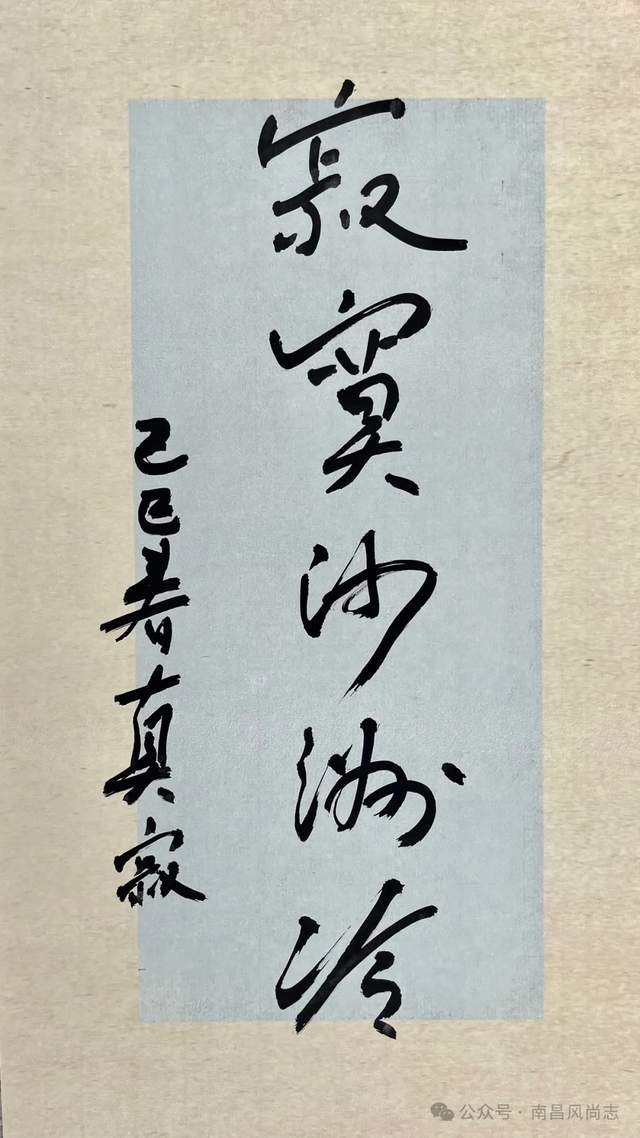 寂寞沙洲冷
己巳春真寂
公众号·南昌风尚志